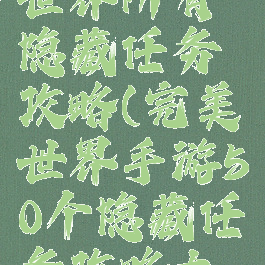 世界所有
隐藏任务
攻略(完美
世界手游5
0个隐藏任
务攻略大